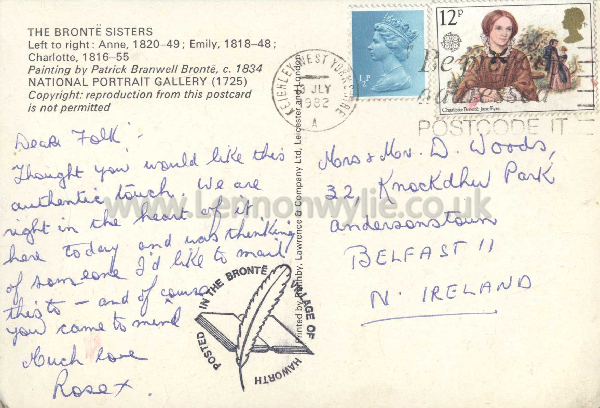 THE BRONTË SISTERS
Left to right: Anne, 1820–49; Emily, 1818–48;
Charlotte, 1816–55
Painting by Patrick Branwell Brontë, c. 1834
NATIONAL PORTRAIT GALLERY (1725)
Copyright: reproduction from this postcard
is not permitted
Dear Folk -
Thought you would like this
authentic touch. We are
right in the heart of it
here today and was thinking
of someone I'd like to mail
this to – and of course
you came to mind
Much love
Rose x.
POSTED IN THE BRONTË VILLAGE OF HAWORTH
Printed by Lawrence & Company Ltd, Leicester and London
KEIGHLEY WEST YORKSHIRE
JLY
1982
A
½P
12P
Charlotte Brontë Jane Eyre
Be
POSTCODE IT
Mrs & Mr. D. Woods,
32, Knockdhu Park
Andersonstown
BELFAST 11
N. IRELAND
www.Lennonwylie.co.uk